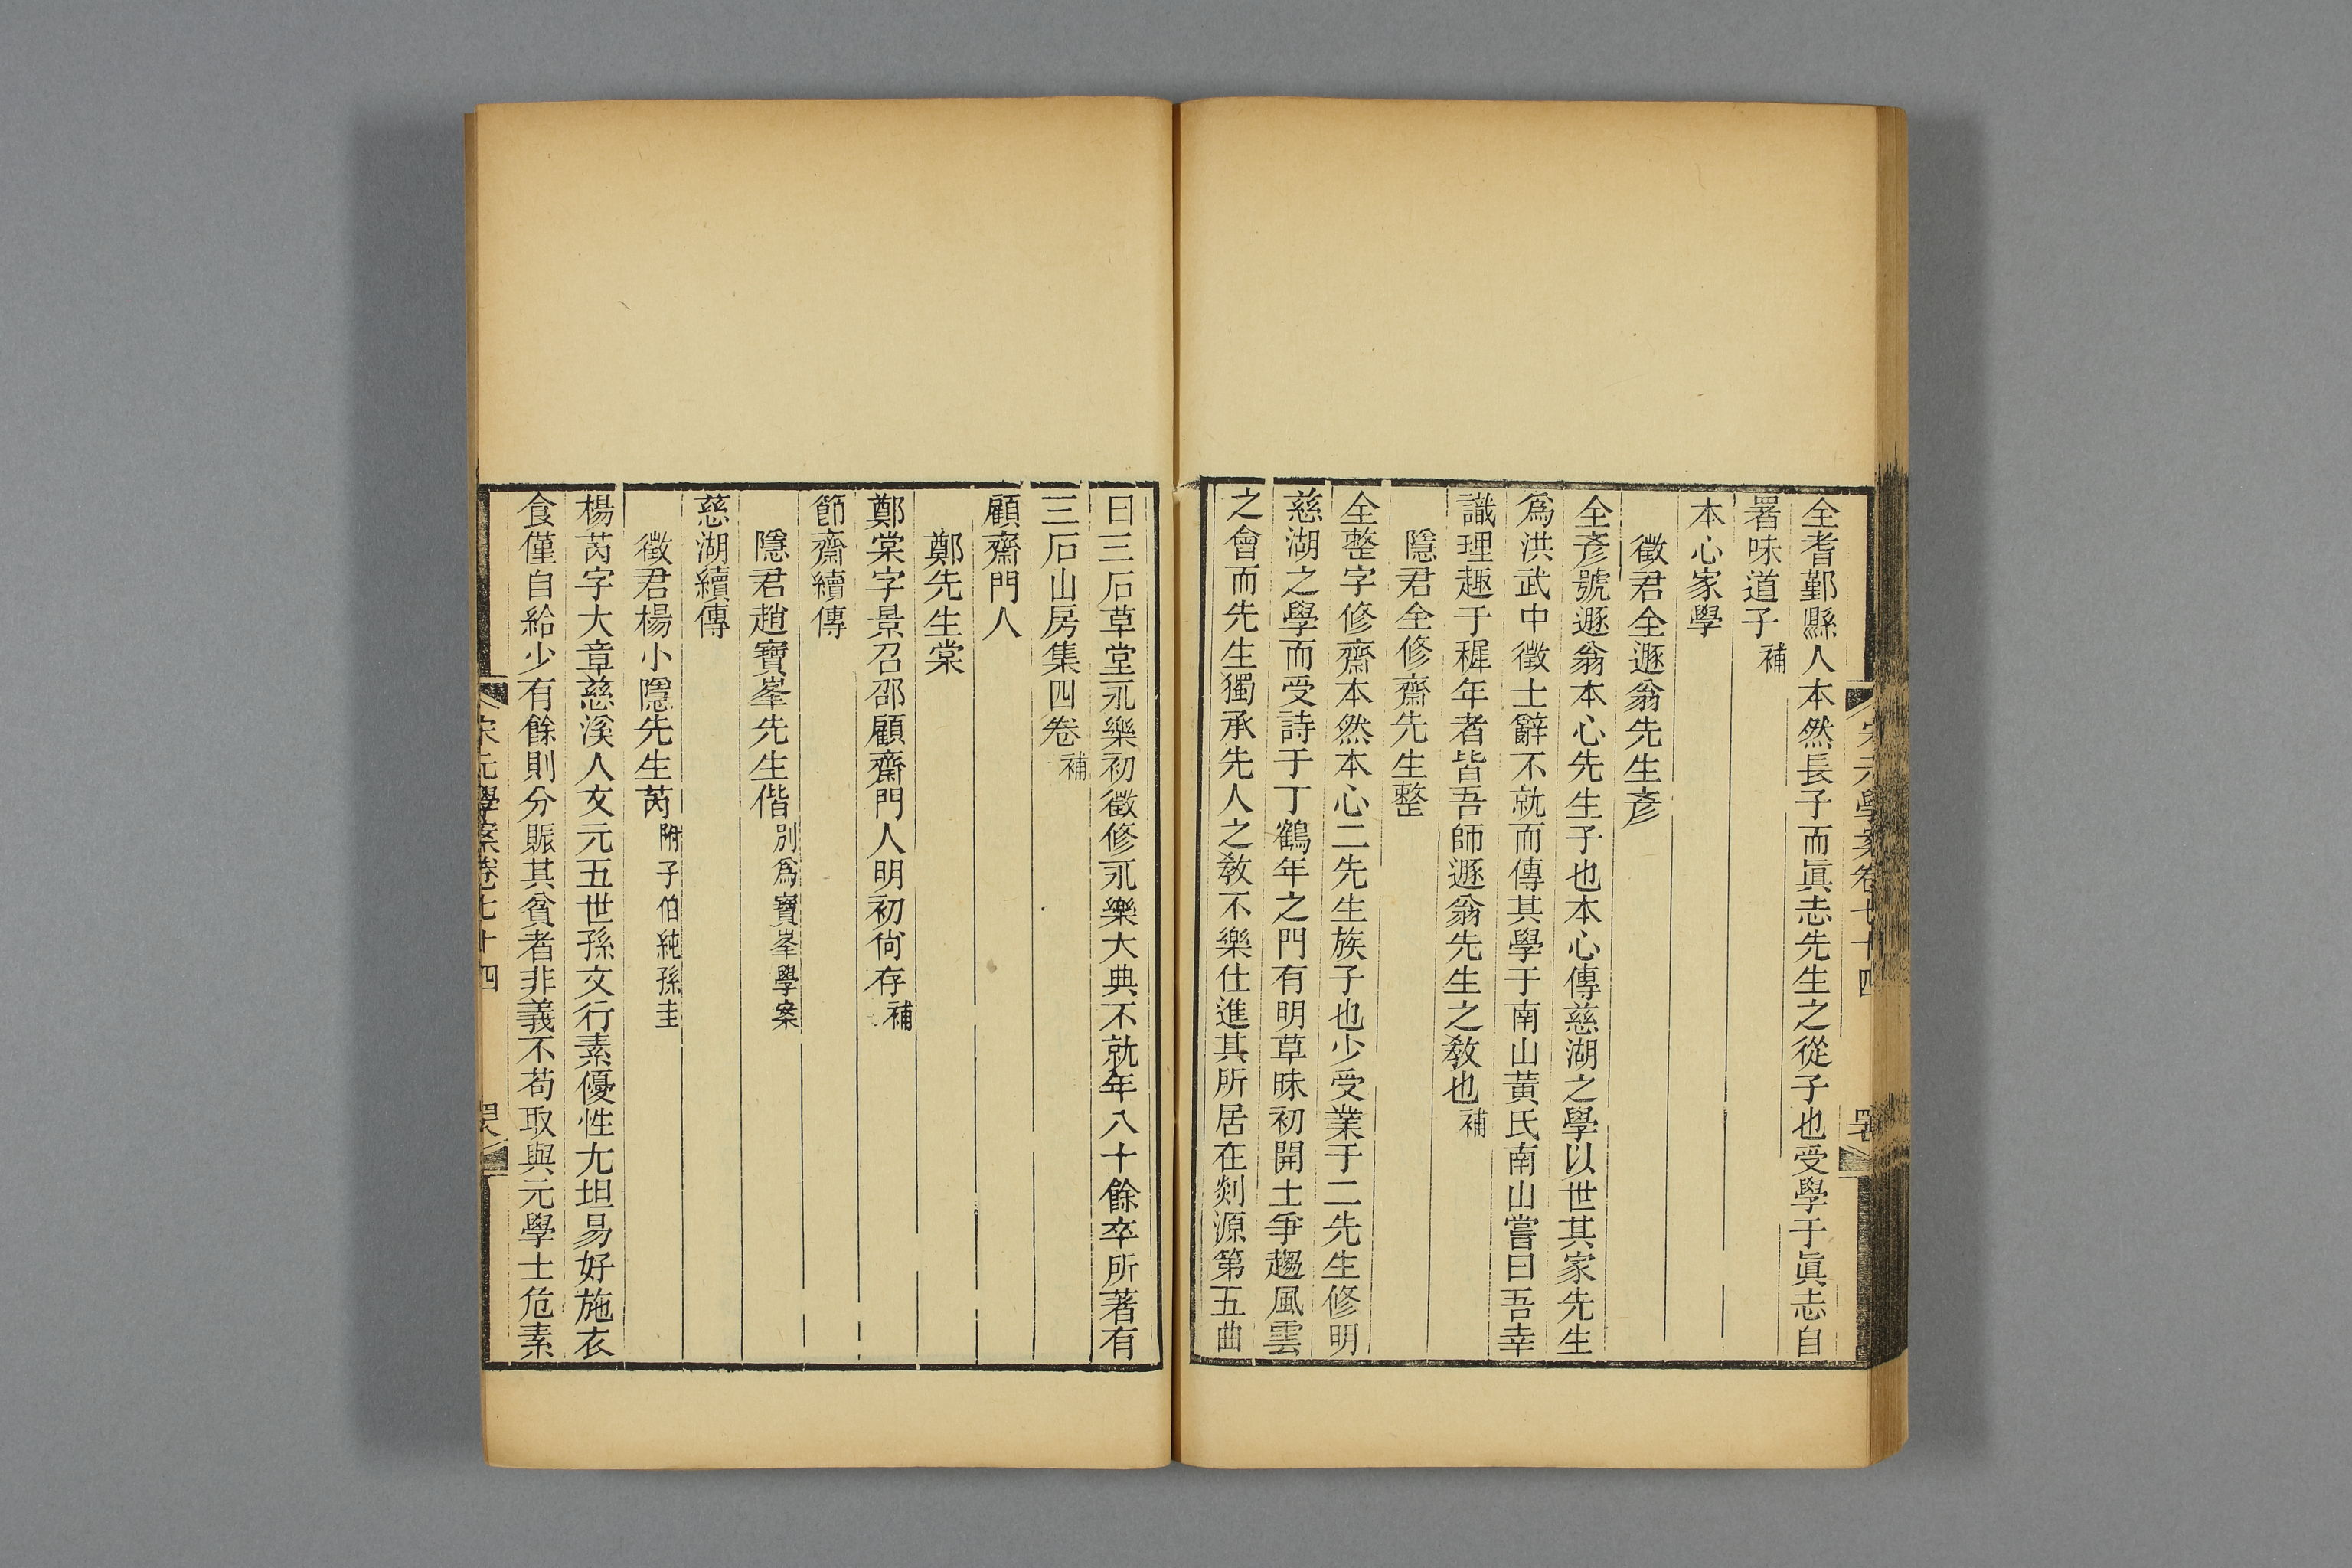 全耆鄞縣人本然長子而眞志先生之從子也受學于眞志自
署味道子補
本心家學
徵君全遯翁先生彥
全彥號遯翁本心先生子也本心傳慈湖之學以世其家先生
爲洪武中徵士辭不就而傳其學于南山黃氏南山嘗曰吾幸
識理趣于穉年者皆吾師遯翁先生之敎也補
隱君全修齋先生整
全整字修齋本然本心二先生族子也少受業于二先生修明
慈湖之學而受詩于丁鶴年之門有明草昧初開士爭趨風雲
之會而先生獨承先人之敎不樂仕進其所居在剡源第五曲
曰三石草堂永樂初徵修永樂大典不就年八十餘卒所著有
三石山房集四卷補
顧齋門人
鄭先生棠
鄭棠字景召邵顧齋門人明初尙存補
節齋續傳
隱君趙寶峯先生偕別爲寶峯學案
慈湖續傳
徵君楊小隱先生芮附子伯純孫圭
楊芮字大章慈溪人文元五世孫文行素優性尤坦易好施衣
食僅自給少有餘則分賑其貧者非義不苟取與元學士危素
宋元學案卷七十四